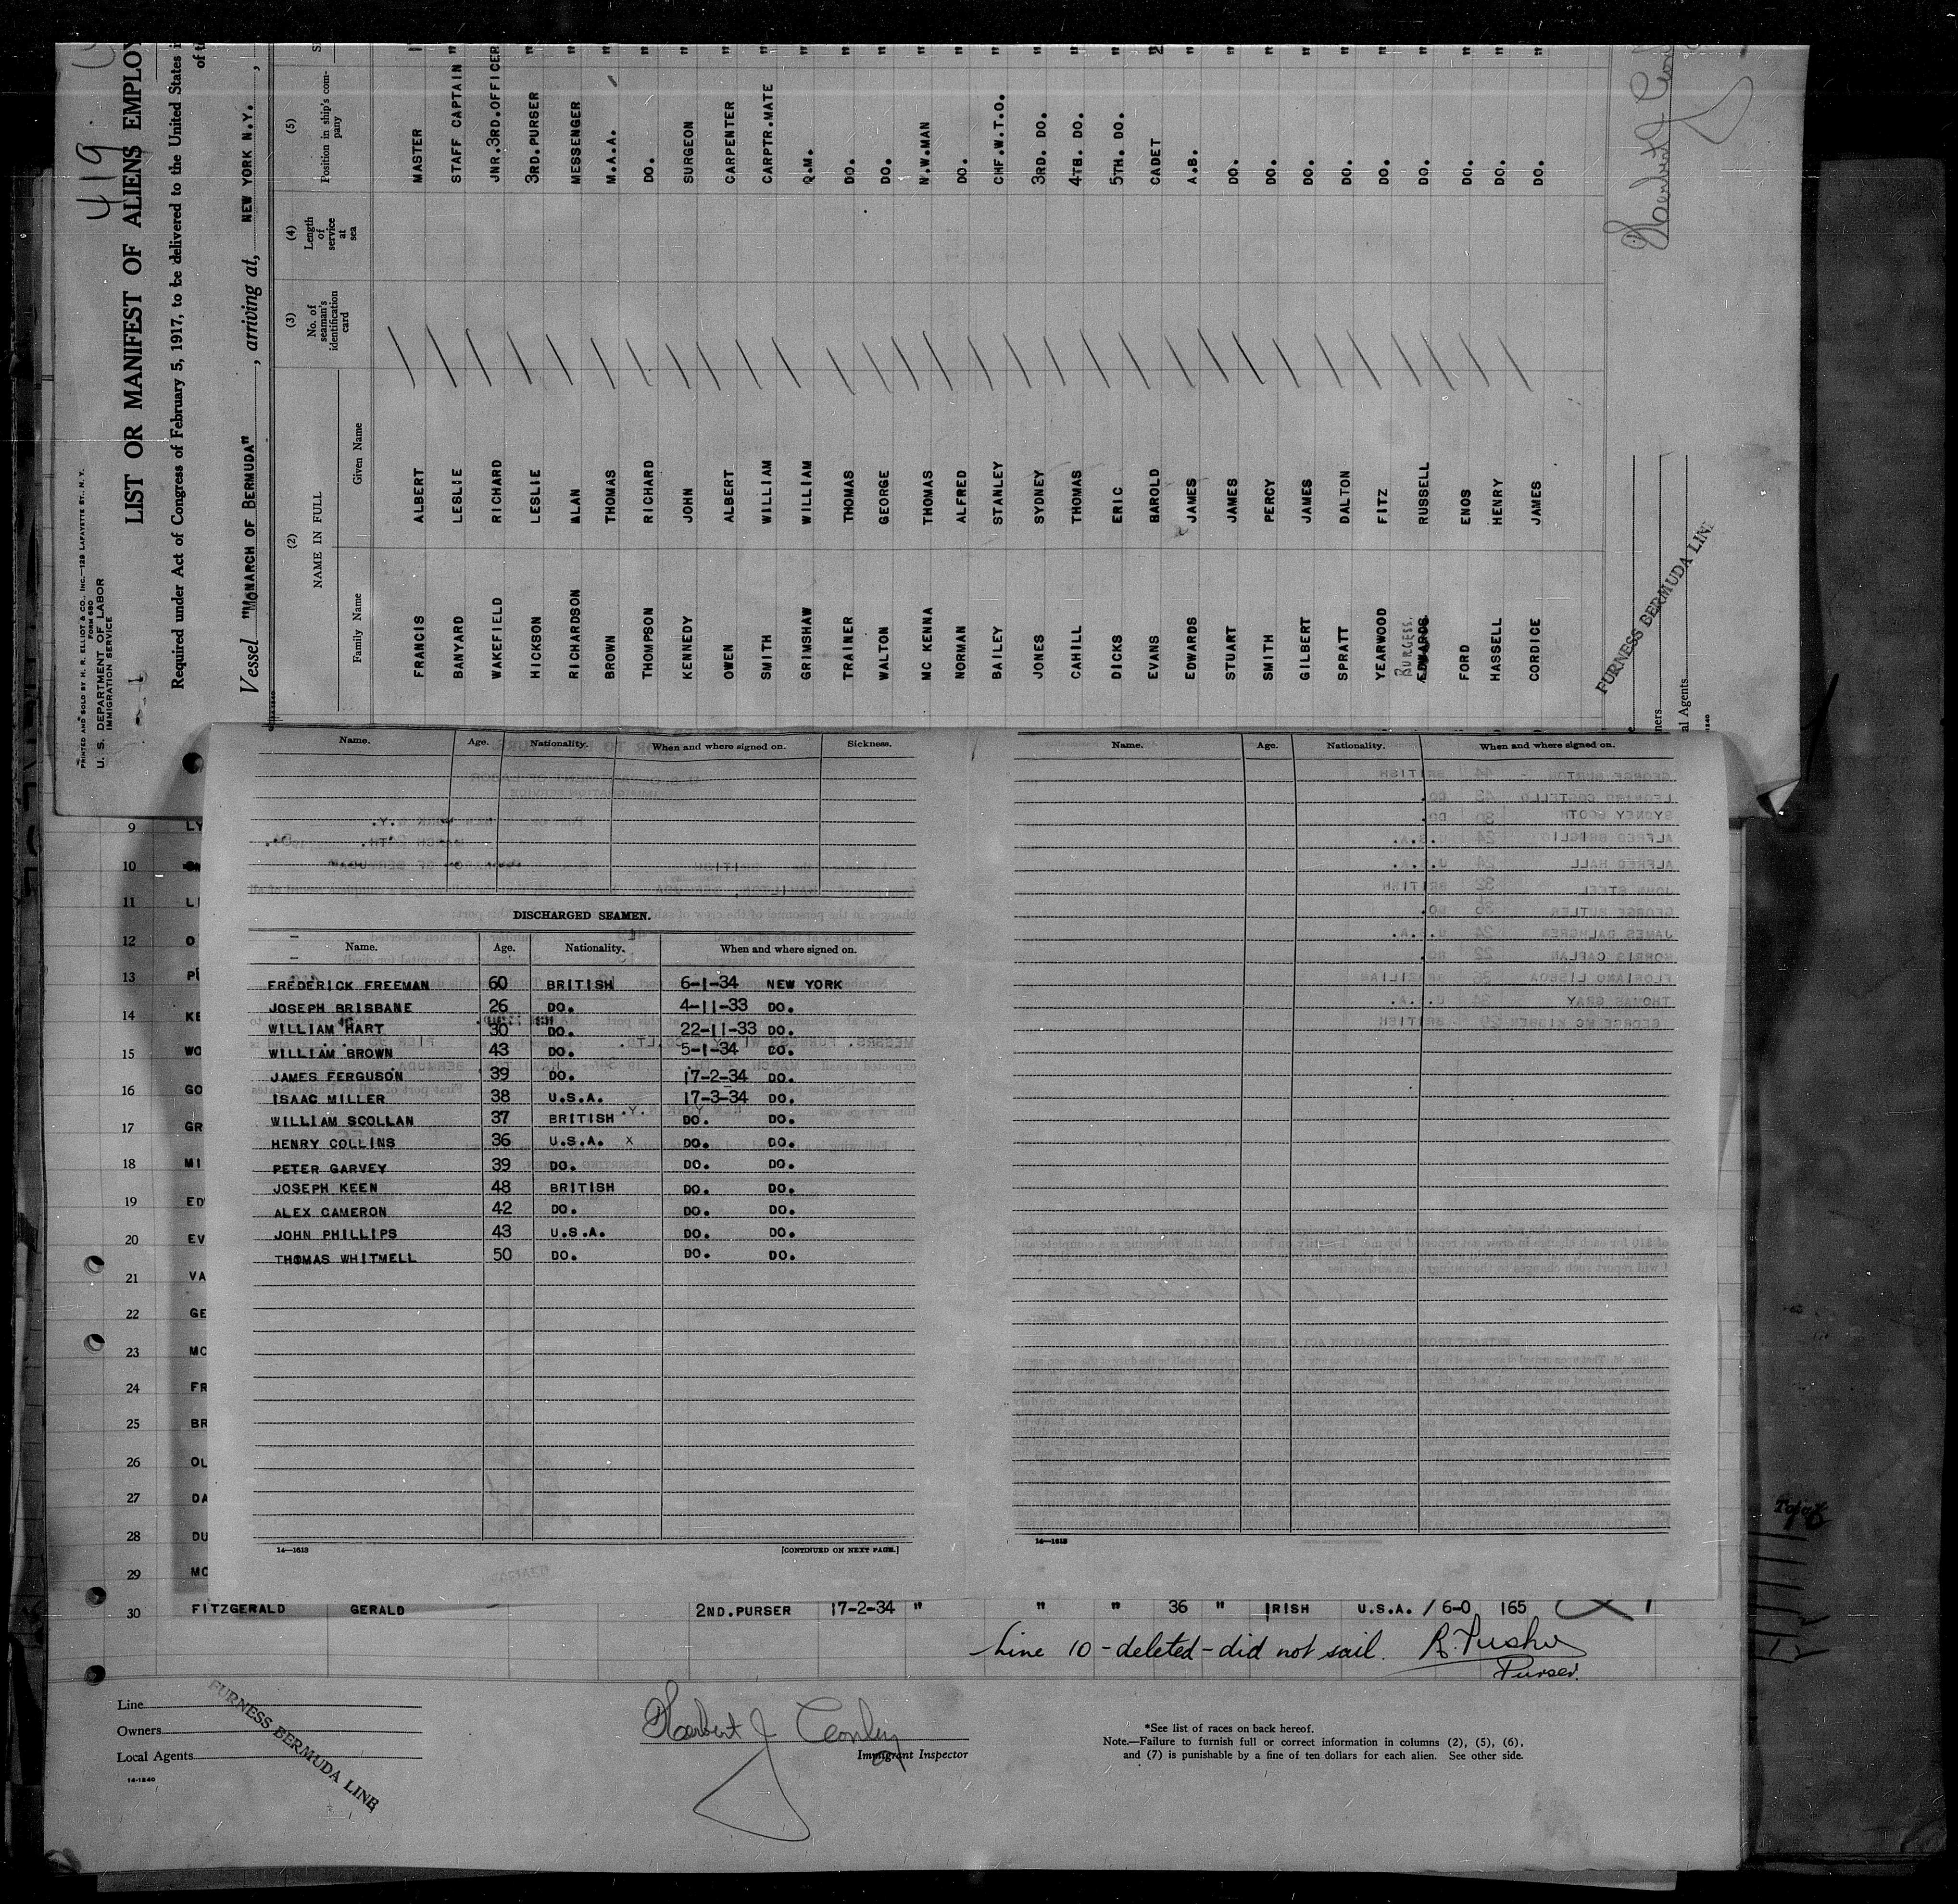 419
PRINTED AND SOLD BY H. R. ELLIOT & CO., INC.—128 LAFAYETTE ST., N. Y.
FORM 680
U. S. DEPARTMENT OF LABOR
IMMIGRATION SERVICE
LIST OR MANIFEST OF ALIENS EMPLOY
Required under Act of Congress of February 5, 1917, to be delivered to the United States i
of t
Vessel "MONARCH OF BERMUDA" , arriving at, NEW YORK N.Y. ,
(2) (3) (4) (5)
NAME IN FULL No. of seaman's identification card Length of service at sea Position in ship's company
Family Name Given Name
FRANCIS ALBERT MASTER
BANYARD LESLIE STAFF CAPTAIN "
WAKEFIELD RICHARD JNR.3RD.OFFICER
HICKSON LESLIE 3RD.PURSER "
RICHARDSON ALAN MESSENGER "
BROWN THOMAS M.A.A. "
THOMPSON RICHARD DO. "
KENNEDY JOHN SURGEON "
OWEN ALBERT CARPENTER "
SMITH WILLIAM CARPTR.MATE "
GRIMSHAW WILLIAM Q.M. "
TRAINER THOMAS DO. "
WALTON GEORGE DO. "
MC KENNA THOMAS N.W.MAN "
NORMAN ALFRED DO. "
BAILEY STANLEY CHF.W.T.O. "
JONES SYDNEY 3RD. DO. "
CAHILL THOMAS 4TH. DO. "
DICKS ERIC 5TH. DO. "
EVANS BAROLD CADET 2
EDWARDS JAMES A.B. "
STUART JAMES DO. "
SMITH PERCY DO. "
GILBERT JAMES DO. "
SPRATT DALTON DO. "
YEARWOOD FITZ DO. "
BURGESS.
EDWARDS RUSSELL DO. "
FORD ENOS DO. "
HASSELL HENRY DO. "
CORDICE JAMES DO. "
FURNESS BERMUDA LINE
ners
al Agents
Name. Age. Nationality. When and where signed on. Sickness.
DISCHARGED SEAMEN.
Name. Age. Nationality. When and where signed on.
FREDERICK FREEMAN 60 BRITISH 6-1-34 NEW YORK
JOSEPH BRISBANE 26 DO. 4-11-33 DO.
WILLIAM HART 30 DO. 22-11-33 DO.
WILLIAM BROWN 43 DO. 5-1-34 DO.
JAMES FERGUSON 39 DO. 17-2-34 DO.
ISAAC MILLER 38 U.S.A. 17-3-34 DO.
WILLIAM SCOLLAN 37 BRITISH DO. DO.
HENRY COLLINS 36 U.S.A. x DO. DO.
PETER GARVEY 39 DO. DO. DO.
JOSEPH KEEN 48 BRITISH DO. DO.
ALEX CAMERON 42 DO. DO. DO.
JOHN PHILLIPS 43 U.S.A. DO. DO.
THOMAS WHITMELL 50 DO. DO. DO.
14—1613 [CONTINUED ON NEXT PAGE.]
Name. Age. Nationality. When and where signed on.
14—1613
9 LY
10
11 LI
12 O
13 PI
14 KE
15 WO
16 GO
17 GR
18 MI
19 ED
20 EV
21 VA
22 GE
23 MC
24 FR
25 BR
26 OL
27 DA
28 DU
29 MC
30 FITZGERALD GERALD 2ND.PURSER 17-2-34 " " " 36 " IRISH U.S.A. / 6-0 165
Line 10 - deleted - did not sail.
Purser.
Line
Owners
Local Agents
14-1240
FURNESS BERMUDA LINE
Herbert J Conley
Immigrant Inspector
*See list of races on back hereof.
Note.—Failure to furnish full or correct information in columns (2), (5), (6),
and (7) is punishable by a fine of ten dollars for each alien. See other side.